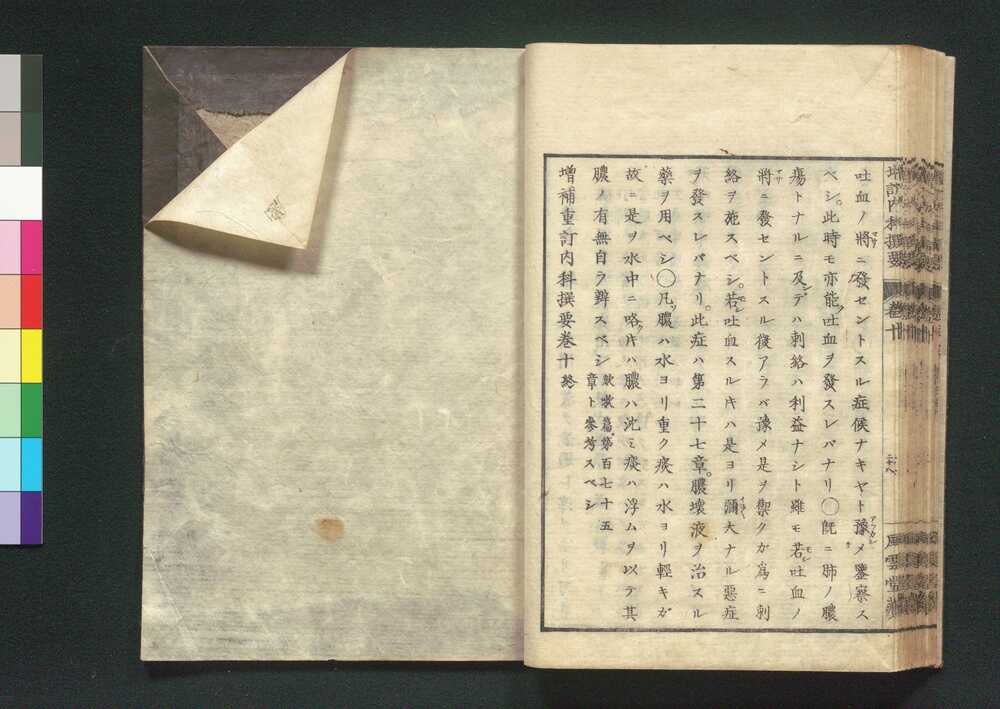 吐血ノ將ニ發セントスル症候ナキヤト豫メ鑒察ス
ベシ。此時モ亦能吐血ヲ發スレバナリ◯旣ニ肺ノ膿
瘍トナルニ及デハ刺絡ハ利益ナシト雖モ若吐血ノ
將ニ發セントスル復アラバ豫メ是ヲ禦クガ爲ニ刺
絡ヲ施スベシ。若吐血スルキハ是ヨリ彌大ナル惡症
ヲ發スレバナリ。此症ハ第二十七章。膿壞液ヲ治スル
藥ヲ用ベシ◯凡膿ハ水ヨリ重ク痰ハ水ヨリ輕キガ
故ニ是ヲ水中ニ咯ハ膿ハ沈ミ痰ハ浮ムヲ以テ其
膿ノ有無自ラ辨スベシ
欬嗽篇第百七十五
章ト參考スベシ
增補重訂內科撰要卷十終
增訂內科撰要
卷十
風雲堂藏